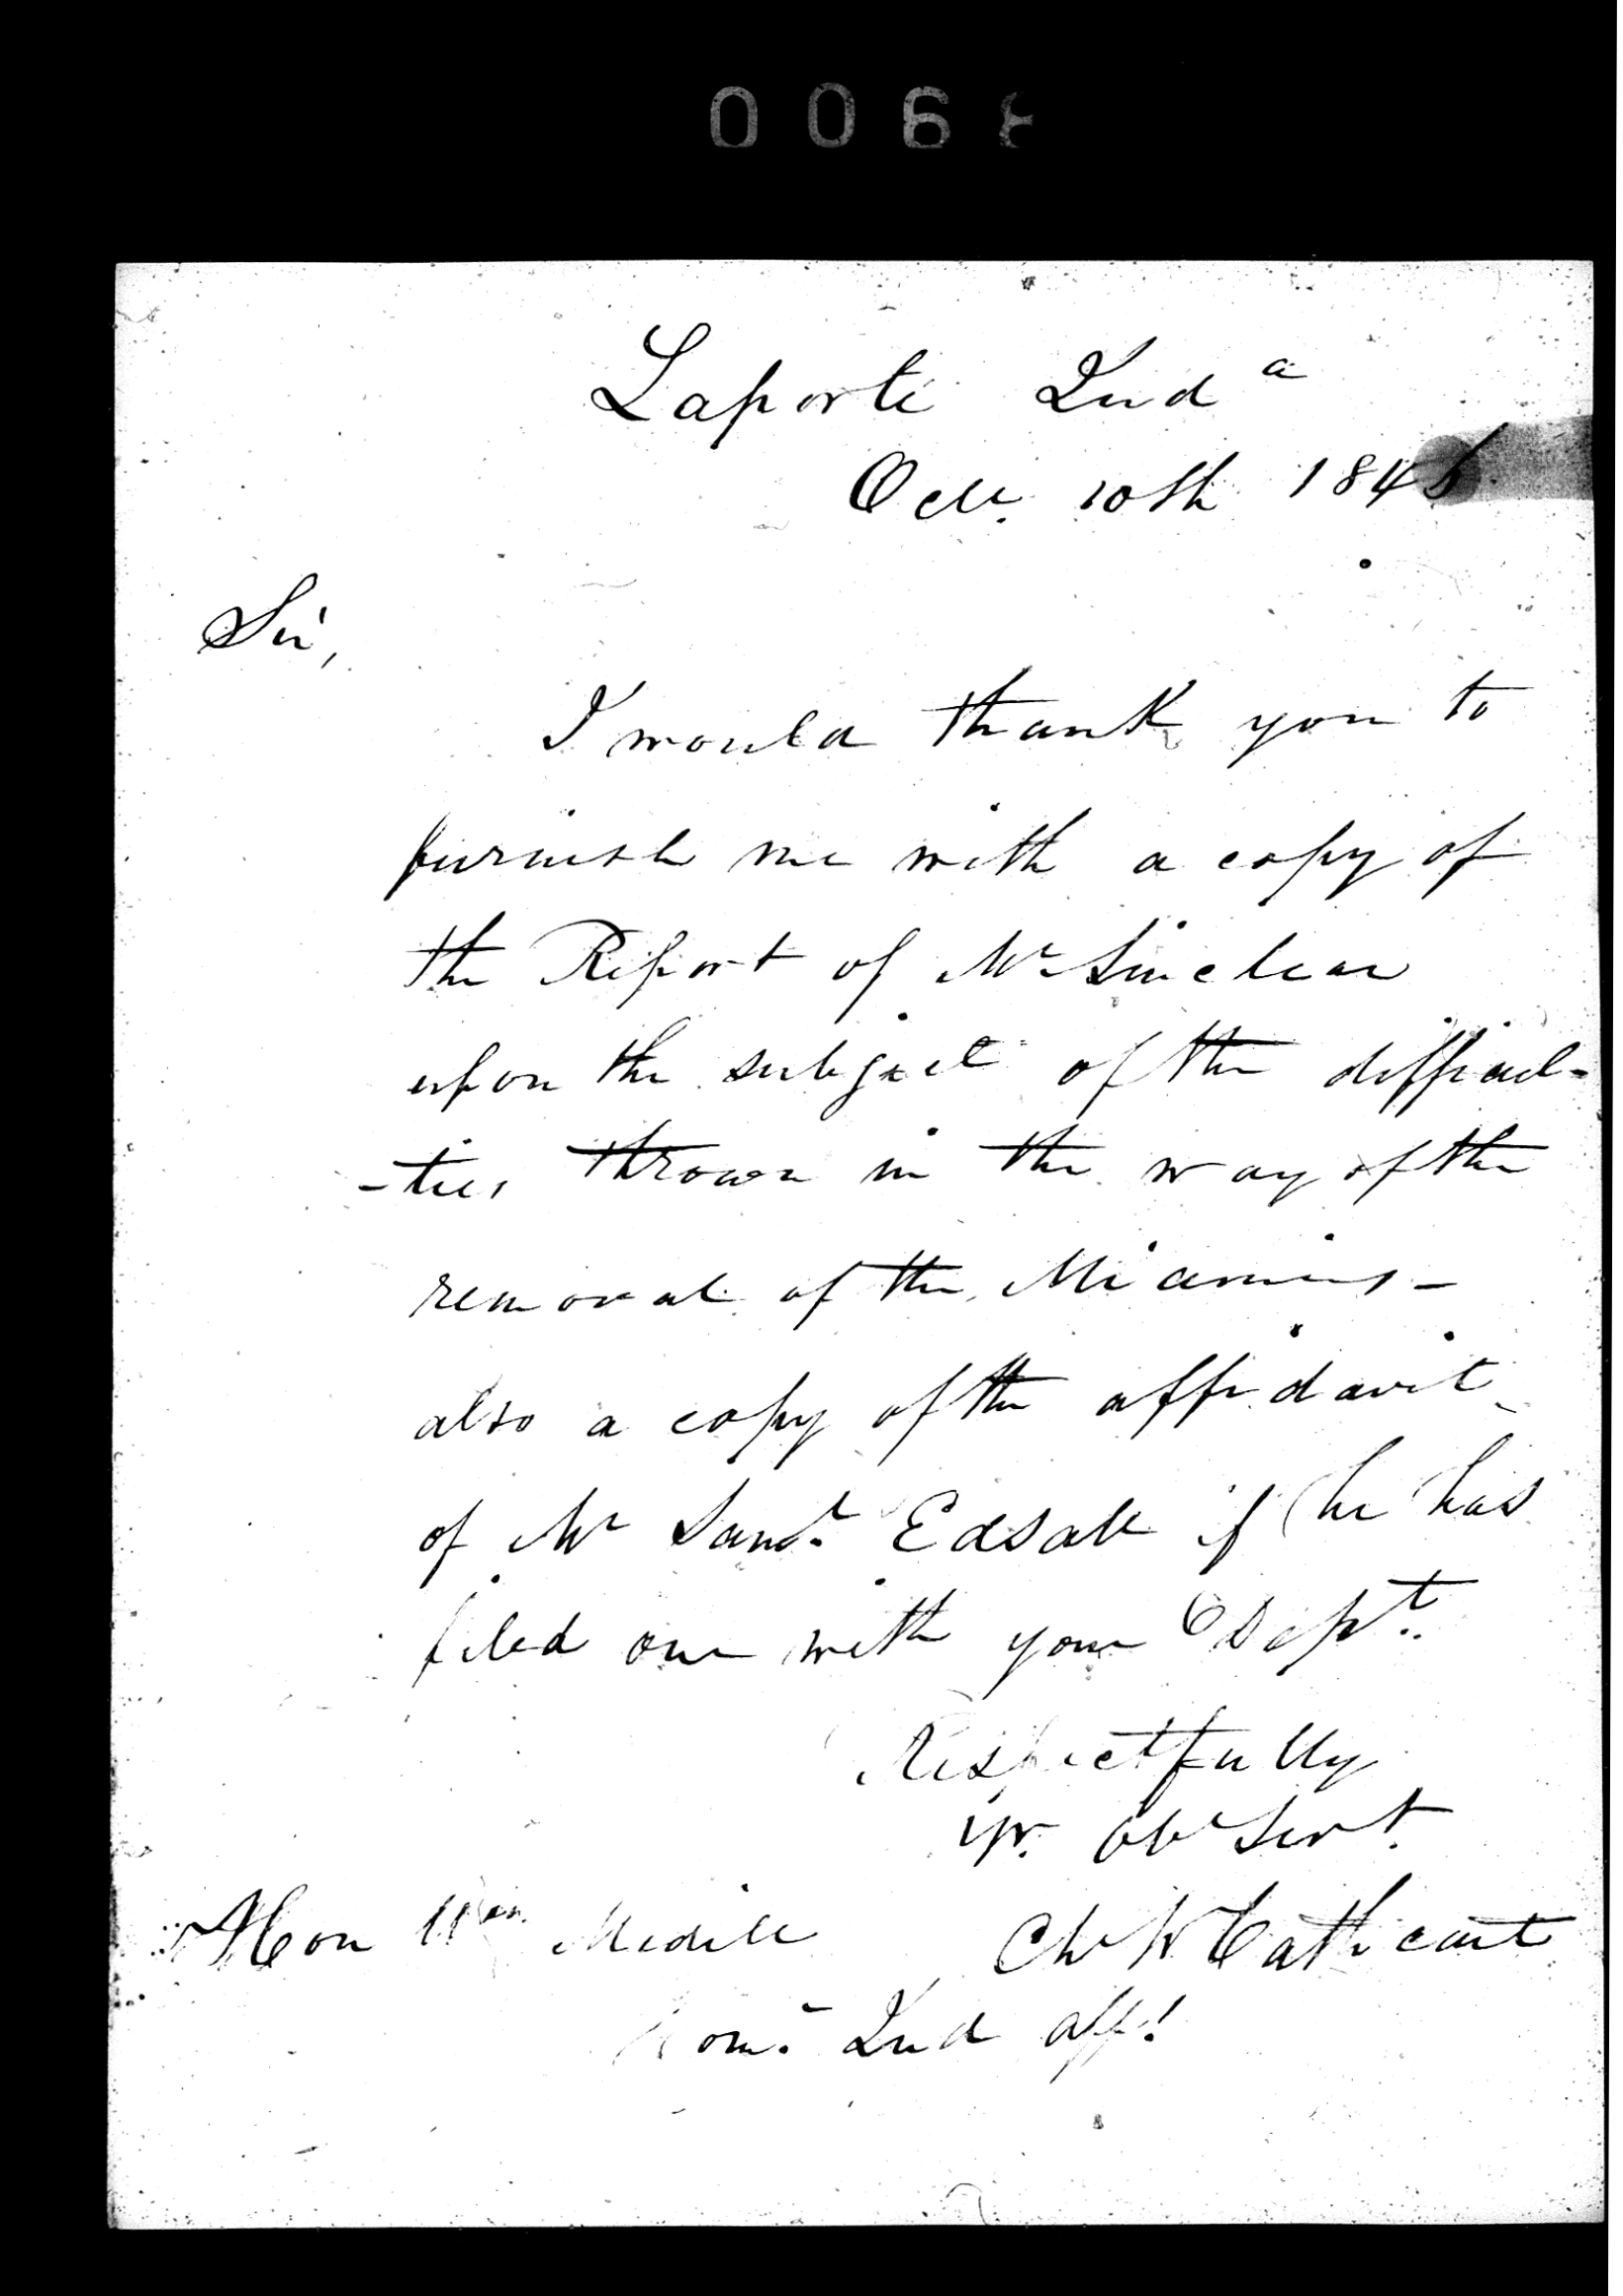 006
Laporte Ind a
Oct. 10th 1846
Sir,
I would thank you to
furnish me with a copy of
the Report of Mr Sinclear
upon the subject of the difficul-
-ties thrown in the way of the
removal of the Miamis -
also a copy of the affidavit
of Mr Saml. Edsall if he has
filed one with your Dept.
Respectfully
yr. obt Servt.
Hon Wm. Medill Ch W Cathcart
Com. Ind Aff!